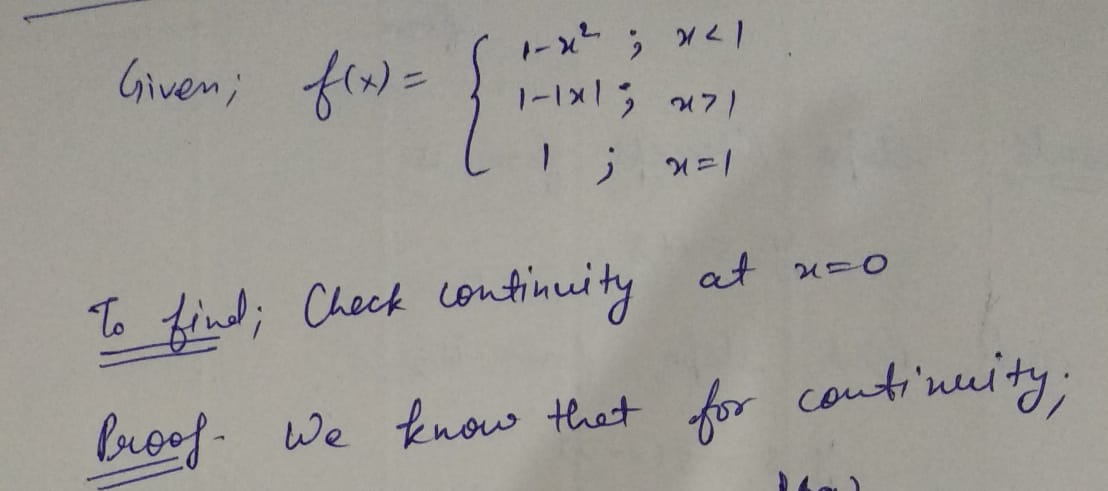 Given; f(x) = { 1-x² ; x<1
1-|x| ; x>1
1 ; x=1
To find; Check continuity at x=0
Proof- We know that for continuity;